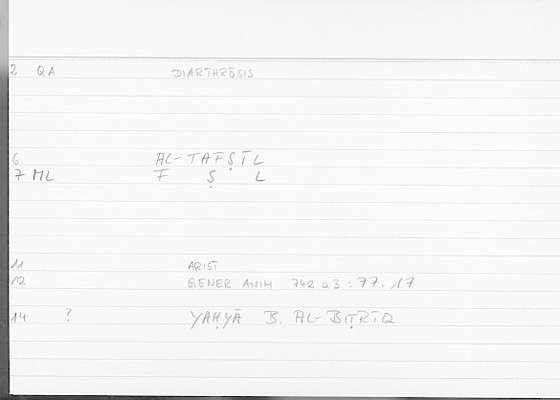 2 QA DIARTHRŌSIS
6 AL-TAFṢĪL
7 ML F Ṣ L
11 ARIST
12 GENER ANIM 742 a3 : 77.17
14 ? YAḤYĀ B. AL-BIṬRĪQ